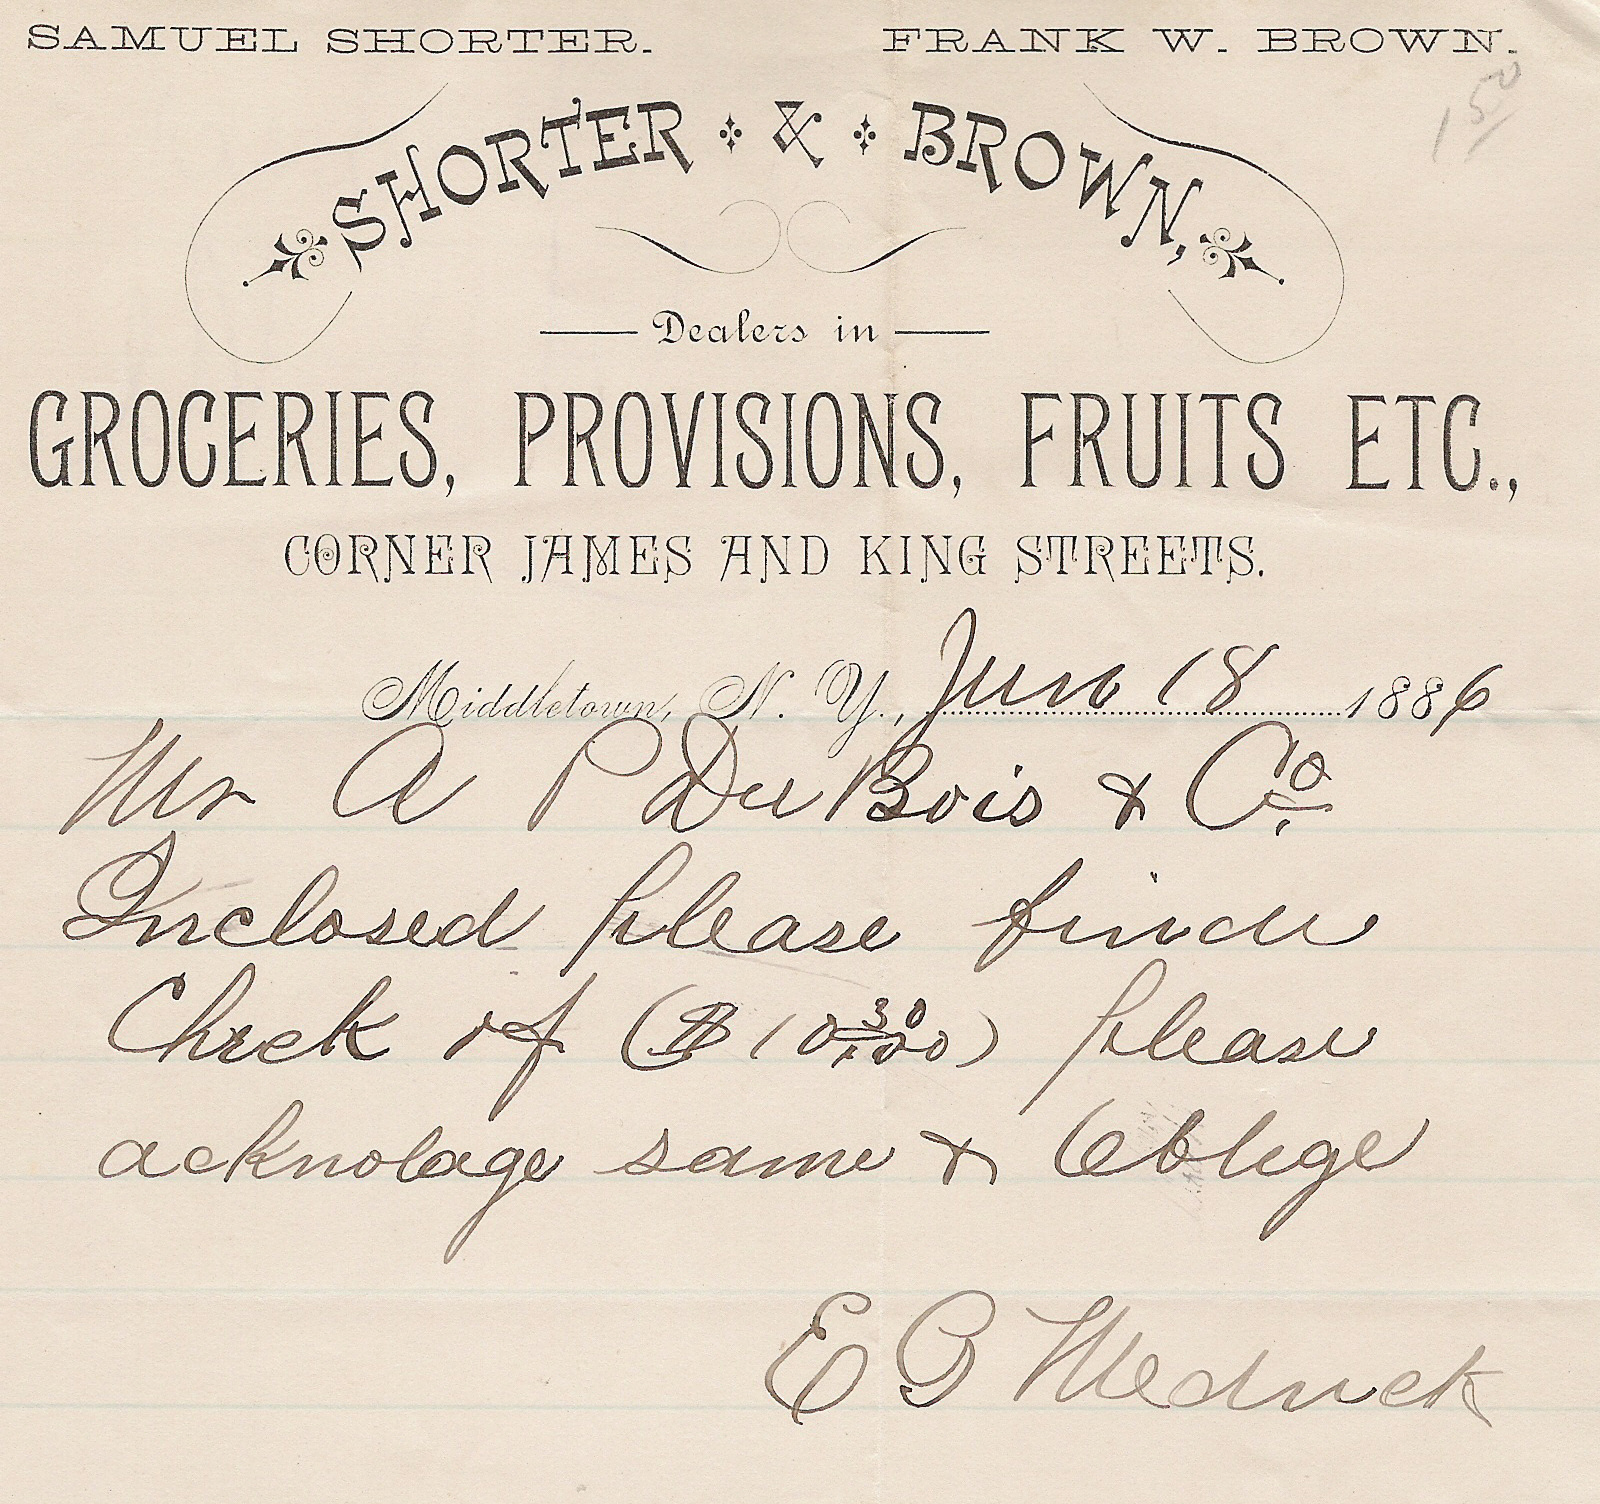 SAMUEL SHORTER. FRANK W. BROWN.
1 50
SHORTER & BROWN,
Dealers in
GROCERIES, PROVISIONS, FRUITS ETC.,
CORNER JAMES AND KING STREETS.
Middletown, N. Y., June 18 1886
Mr A P DuBois & Co.
Inclosed please find
Check of ($10 30/100) please
acknolage same & Oblige
E G